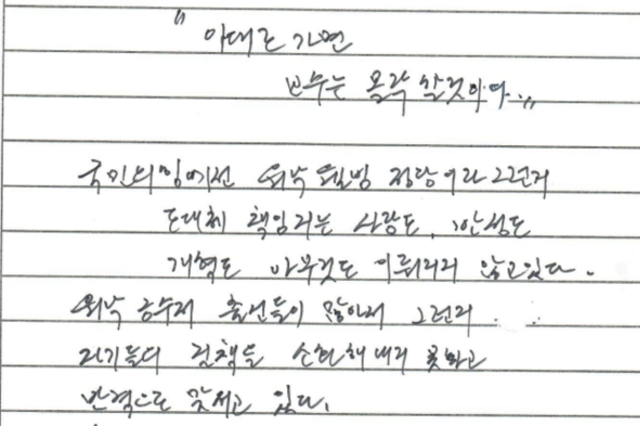 "이대로 가면
보수는 몰락 할것이다.."
국민의힘에선 워낙 웰빙 정당이라 그런지
도대체 책임지는 사람도, 반성도
개혁도 아무것도 이뤄지지 않고있다.
워낙 공수래 출신들이 많아서 그런지..
자기들의 잘책을 순화해내지 못하고
반격으로 맞서고 있다.